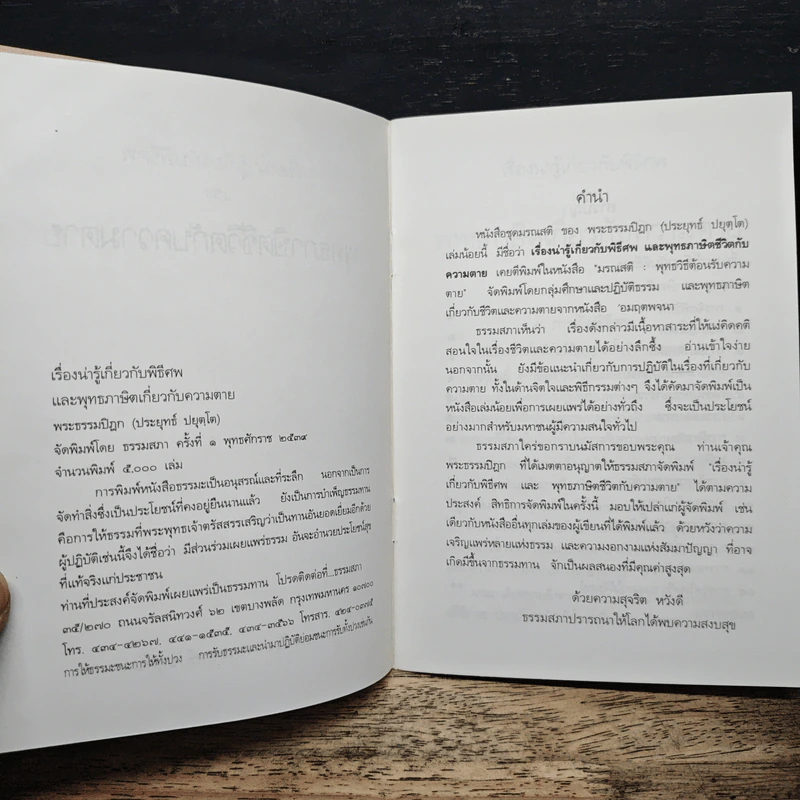 เรื่องน่ารู้เกี่ยวกับพิธีศพ
และพุทธภาษิตเกี่ยวกับความตาย
พระธรรมปิฎก (ประยุทธ์ ปยุตฺโต)
จัดพิมพ์โดย ธรรมสภา ครั้งที่ ๑ พุทธศักราช ๒๕๓๙
จำนวนพิมพ์ ๕,๐๐๐ เล่ม
การพิมพ์หนังสือธรรมะเป็นอนุสรณ์และที่ระลึก นอกจากเป็นการ
จัดทำสิ่งซึ่งเป็นประโยชน์ที่คงอยู่ยืนนานแล้ว ยังเป็นการบำเพ็ญธรรมทาน
คือการให้ธรรมที่พระพุทธเจ้าตรัสสรรเสริญว่าเป็นทานอันยอดเยี่ยมอีกด้วย
ผู้ปฏิบัติเช่นนี้จึงได้ชื่อว่า มีส่วนร่วมเผยแพร่ธรรม อันจะอำนวยประโยชน์สุข
ที่แท้จริงแก่ประชาชน
ท่านที่ประสงค์จัดพิมพ์เผยแพร่เป็นธรรมทาน โปรดติดต่อที่...ธรรมสภา
๓๕/๒๗๐ ถนนจรัลสนิทวงศ์ ๖๒ เขตบางพลัด กรุงเทพมหานคร ๑๐๗๐๐
โทร. ๔๓๔-๔๒๖๗, ๔๔๑-๑๕๓๕, ๔๓๔-๓๕๖๖ โทรสาร.
การให้ธรรมะชนะการให้ทั้งปวง การรับธรรมะและนำมาปฏิบัติย่อมชนะการรับทั้งปวงเช่นกัน
คำนำ
หนังสือชุดมรณสติ ของ พระธรรมปิฎก (ประยุทธ์ ปยุตฺโต)
เล่มน้อยนี้ มีชื่อว่า เรื่องน่ารู้เกี่ยวกับพิธีศพ และพุทธภาษิตชีวิตกับ
ความตาย เคยตีพิมพ์ในหนังสือ "มรณสติ : พุทธวิธีต้อนรับความ
ตาย" จัดพิมพ์โดยกลุ่มศึกษาและปฏิบัติธรรม และพุทธภาษิต
เกี่ยวกับชีวิตและความตายจากหนังสือ 'อมฤตพจนา
ธรรมสภาเห็นว่า เรื่องดังกล่าวมีเนื้อหาสาระที่ให้แง่คิดคติ
สอนใจในเรื่องชีวิตและความตายได้อย่างลึกซึ้ง อ่านเข้าใจง่าย
นอกจากนั้น ยังมีข้อแนะนำเกี่ยวกับการปฏิบัติในเรื่องที่เกี่ยวกับ
ความตาย ทั้งในด้านจิตใจและพิธีกรรมต่างๆ จึงได้คัดมาจัดพิมพ์เป็น
หนังสือเล่มน้อยเพื่อการเผยแพร่ได้อย่างทั่วถึง ซึ่งจะเป็นประโยชน์
อย่างมากสำหรับมหาชนผู้มีความสนใจทั่วไป
ธรรมสภาใคร่ขอกราบนมัสการขอบพระคุณ ท่านเจ้าคุณ
พระธรรมปิฎก ที่ได้เมตตาอนุญาตให้ธรรมสภาจัดพิมพ์ "เรื่องน่ารู้
เกี่ยวกับพิธีศพ และ พุทธภาษิตชีวิตกับความตาย" ได้ตามความ
ประสงค์ สิทธิการจัดพิมพ์ในครั้งนี้ มอบให้เปล่าแก่ผู้จัดพิมพ์ เช่น
เดียวกับหนังสืออื่นทุกเล่มของผู้เขียนที่ได้พิมพ์แล้ว ด้วยหวังว่าความ
เจริญแพร่หลายแห่งธรรม และความงอกงามแห่งสัมมาปัญญา ที่อาจ
เกิดมีขึ้นจากธรรมทาน จักเป็นผลสนองที่มีคุณค่าสูงสุด
ด้วยความสุจริต หวังดี
ธรรมสภาปรารถนาให้โลกได้พบความสงบสุข